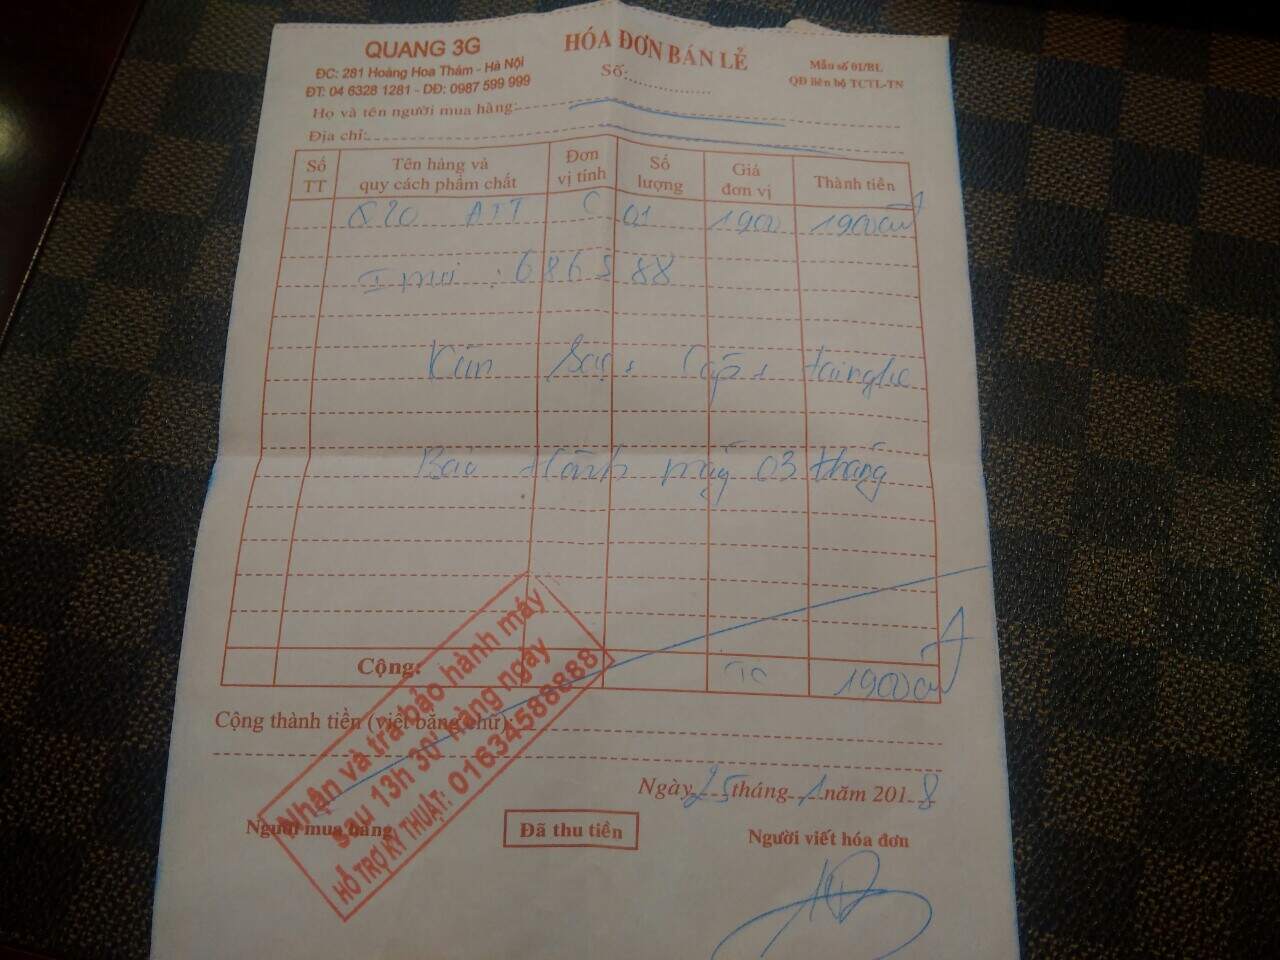 QUANG 3G
ĐC: 281 Hoàng Hoa Thám - Hà Nội
ĐT: 04 6328 1281 - DĐ: 0987 599 999
HÓA ĐƠN BÁN LẺ
Số:
Mẫu số 01/BL
QĐ liên bộ TCTL-TN
Họ và tên người mua hàng:
Địa chỉ:
Số TT Tên hàng và quy cách phẩm chất Đơn vị tính Số lượng Giá đơn vị Thành tiền
C 01 1900
: 686588
Sạc + Cáp + tai nghe
Bảo Hành máy 03 tháng
Cộng:
Cộng thành tiền (viết bằng chữ):
Ngày 25 tháng 1 năm 2018
Người mua hàng Đã thu tiền Người viết hóa đơn
Nhận và trả bảo hành máy
sau 13h 30' hàng ngày
HỖ TRỢ KỸ THUẬT: 01634588888